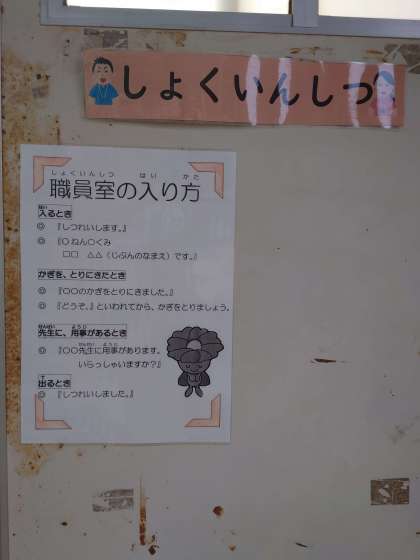 しょくいんしつ
職員室の入り方
入るとき
◎ 『しつれいします。』
◎ 『〇ねん〇くみ
□□ △△（じぶんのなまえ）です。』
かぎを、とりにきたとき
◎ 『〇〇のかぎをとりにきました。』
◎ 『どうぞ。』といわれてから、かぎをとりましょう。
先生に、用事があるとき
◎ 『〇〇先生に用事があります。
いらっしゃいますか？』
出るとき
◎ 『しつれいしました。』